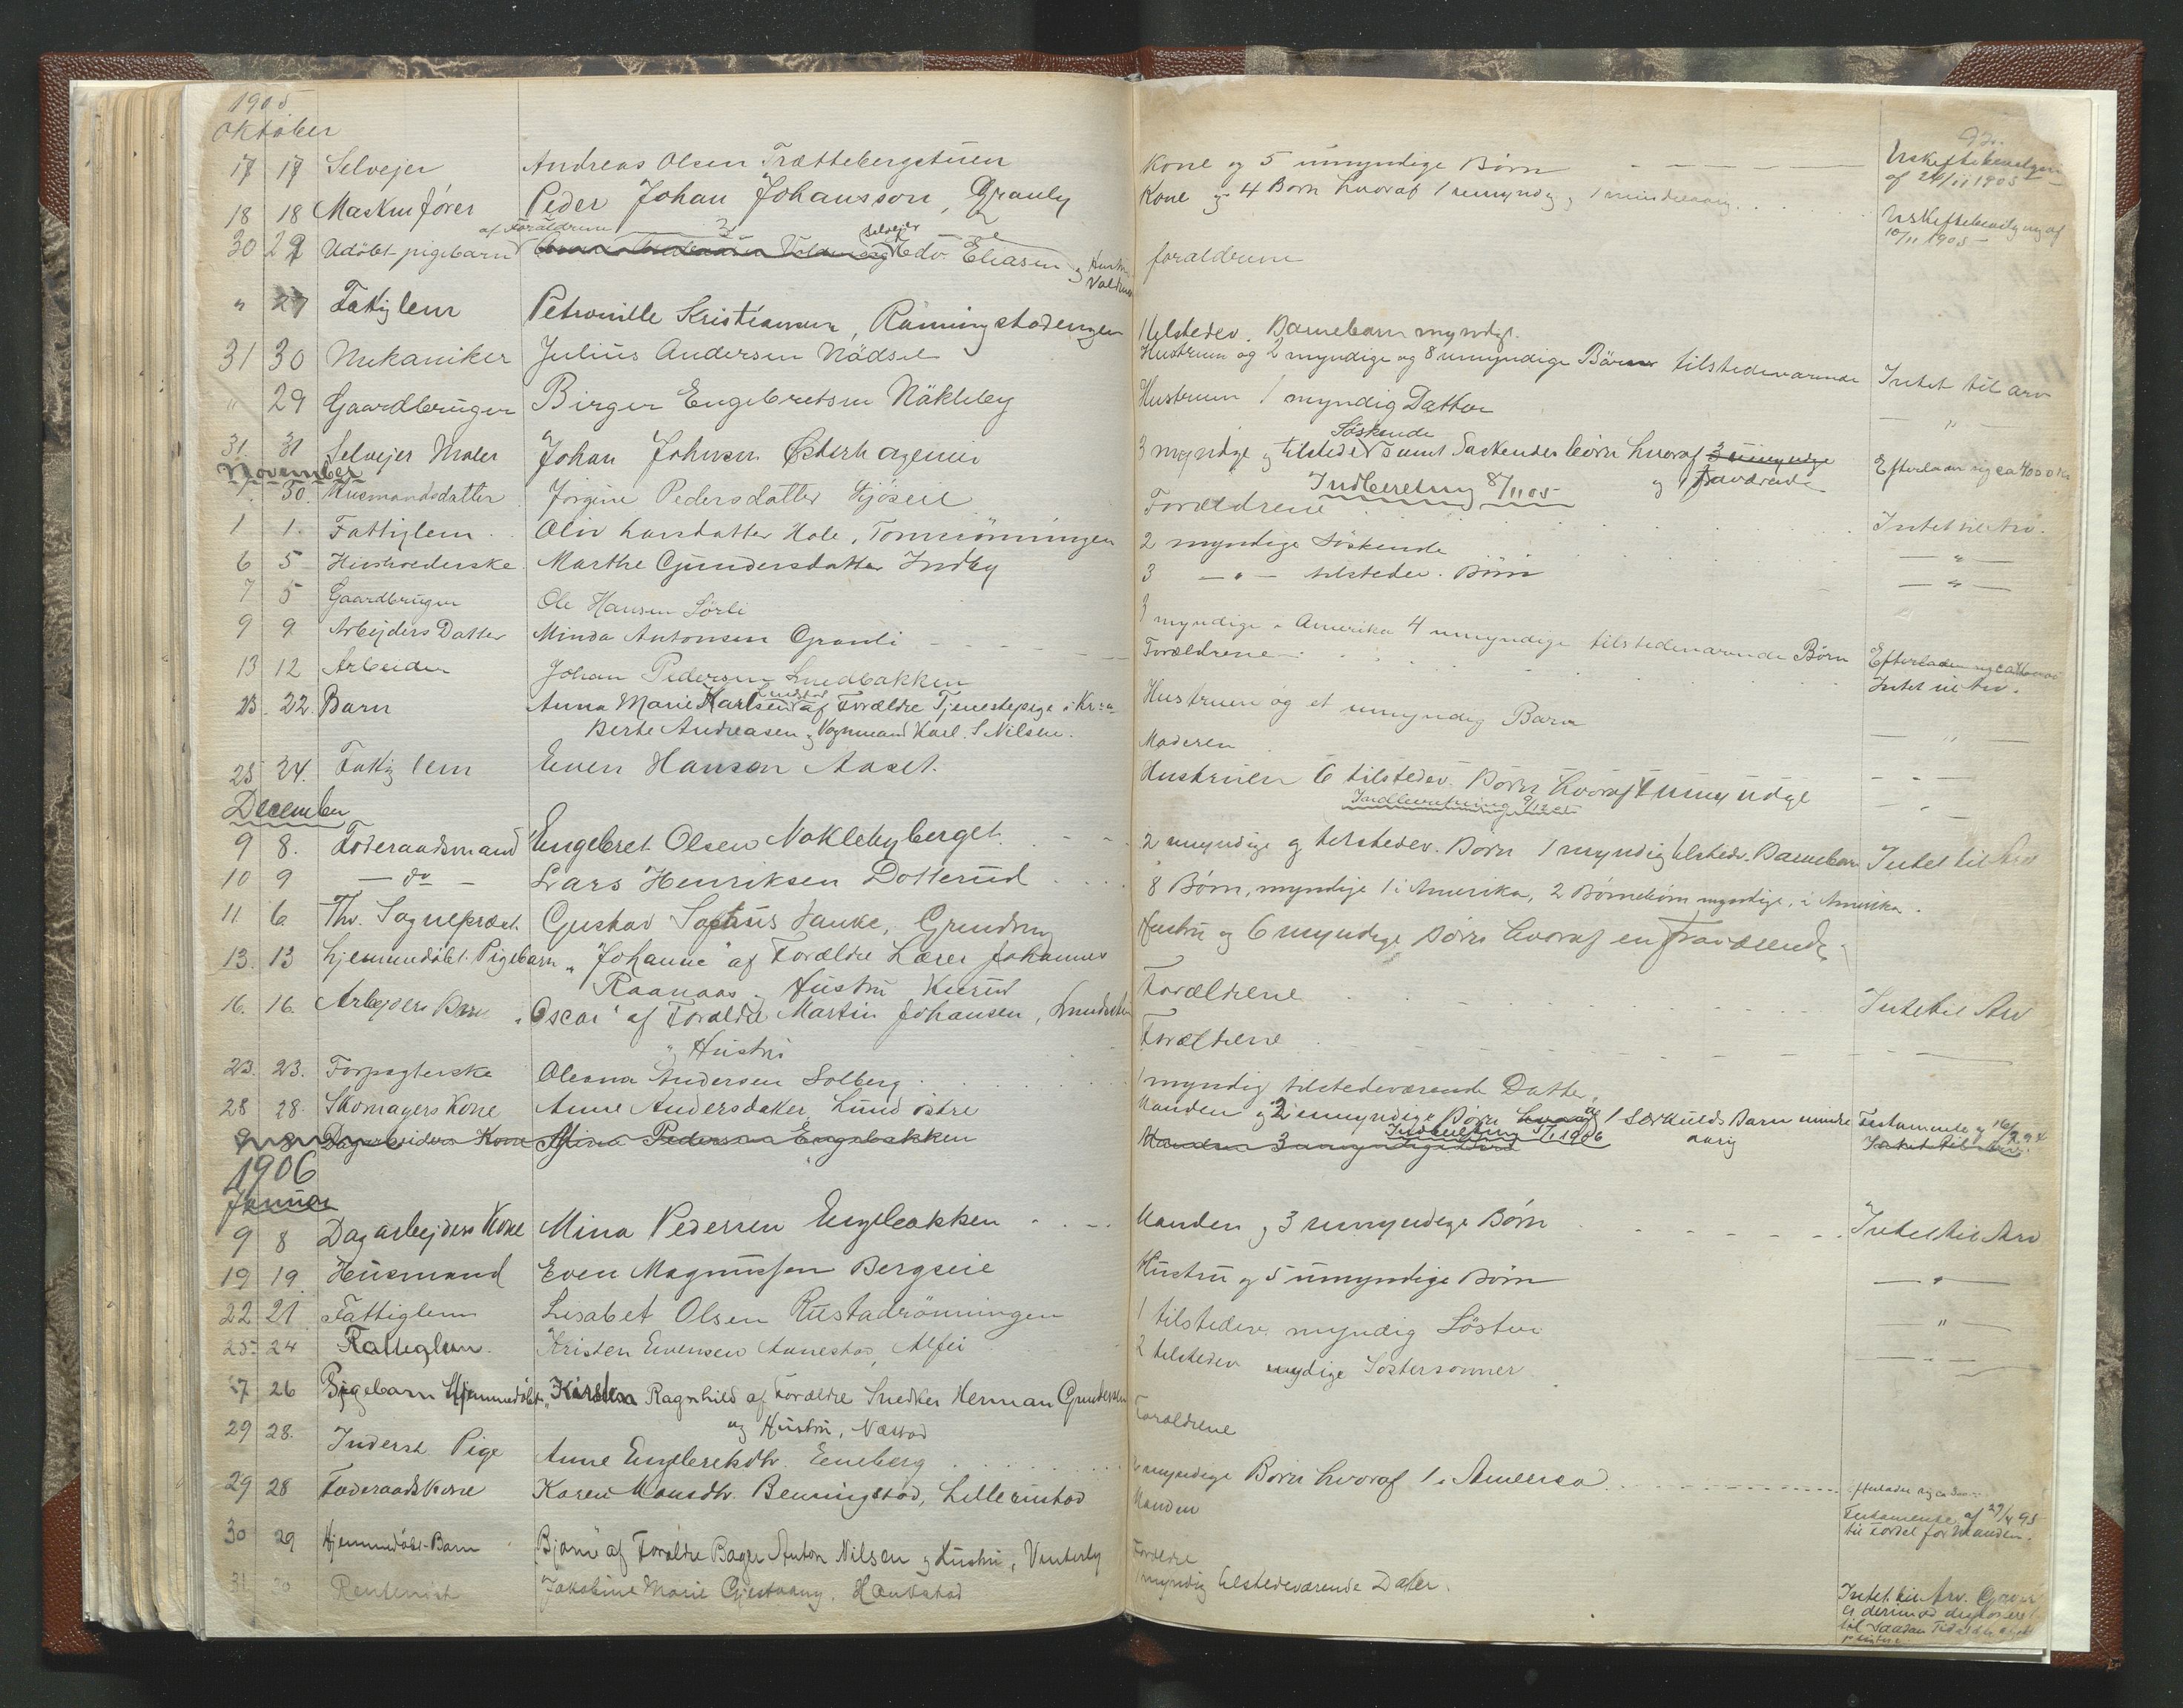 1905
Oktober
17 17 Selvejer Andreas Olsen Trættebergstuen Kone og 5 umyndige Børn Uskiftebevilgen
af 24/11 1905
18 18 Maskinfører Peder Johan Johansson, Granly Kone og 4 Børn hvoraf 1 umyndig, 1 mindreaarig Uskiftebevilgning af
10/11 1905
af Forældrene Selvejer
30 29 Udöbt pigebarn Edv. Eliasen og Hustru forældrene
" 27 Fattiglem Petronille Kristiansen, Rönningstadengen 1 tilstedev. Barnebarn myndigt.
31 30 Mekaniker Julius Andersen Nädset Hustruen og 2 myndige og 8 umyndige Børn tilstedeværende Intet til arv
" 29 Gaardbruger Birger Engebretsen Näkleby Hustruen 1 myndig Datter "
Søskende
31 31 Selvejer Maler Johan Johnsen Østerhageneie 3 myndige og tilstedev samt Søskendes børn hvoraf 3 umyndige Efterlader sig ca 4000 Kr
og fraværende
November Indberetning 8/11 05
1. 30. Husmandsdatter Jörgine Pedersdatter Forældrene Intet til Arv.
1 1. Fattiglem Oliv Larsdatter Hole, Tomrönningen 2 myndige Söskende — " —
6 5 Husholderske Marthe Gundersdatter Indby 3 — " — tilstedev. Børn — " —
7 5 Gaardbruger Ole Hansen Sörli 3 myndige i Amerika 4 umyndige tilstedeværende Børn Efterlader sig ca
9 9 Arbejders Datter Minda Antonsen Granli Forældrene Intet til Arv.
13 12 Arbeider Johan Pedersen Lundbakken Hustruen og et umyndig Barn — " —
23. 22. Barn Anna Marie Karlsen af Forældre Tjenestepige i Kr:a Moderen — " —
Berte Andreasen og Vognmand Karl. S Nilsen.
25 24. Fattiglem Even Hansen Aaset. Hustruen 6 tilstedev. Børn hvoraf 4 umyndige
December Indberetning
9 8. Foderaadsmand Engebret Olsen Noklebyberget. 2 myndige og tilstedev. Børn 1 myndig tilstedv. Barnebarn Intet til Arv
10 9 — do — Lars Henriksen Dotterud 8 Børn, myndige 1 i Amerika, 2 Børnebørn myndige, i Amerika.
11 6. Thv. Sognepræst Gustav Hustru og 6 myndige Børn hvoraf en fraværende
13. 13 hjemmedöbt Pigebarn „Johanne" af Forældre Lærer Johannes Forældrene Intet til Arv
Raanaas og Hustru
16. 16. Arbejders Barn „Oscar" af Forældre Martin Johansen, Forældrene
og Hustru
23. 23. Forpagterske Oleana Andersen Solberg 1 myndig tilstedeværende Datter,
28 28. Skomagers Kone Anne Andersdatter, Lund östre Manden og 2 umyndige Børn og 1 Særkulds Barn mindre Testamente
aarig
9 8 Dagarbeiders Kone Mina Pedersen Engebakken Manden 3 umyndige Børn Indberetning 5/1 1906 Intet til Arv.
1906
Januar
9 8 Dagarbejders Kone Mina Pedersen Engebakken Manden og 3 umyndige Børn Intet til Arv
19 19 Husmand Even Magnussen Bergseie Hustru og 5 umyndige Børn — " —
22 21 Fattiglem Lisabet Olsen Rustadrönningen 1 tilstedev. myndig Söster — " —
25. 24 Fattiglem. Kristen Evensen Annestad, Alfei 2 tilstedev myndige Söstersönner — " —
27 26 Pigebarn Hjemmedöbt „Kirsten Ragnhild af Forældre Snedker Herman Gundersen Forældrene
og Hustru, Næstad
29 28. Inderst Pige Anne Engebretsdtr. Eneberg 2 myndige Børn hvoraf 1 i Amerika Efterlader sig ca 300
29 28 Foderaadskone Karen Monsdtr. Benningstad, Lillerustad Manden Testamente af 29/4 95
til Fordel for Manden.
30 29 Hjemmedöbt-Barn Bjarne" af Forældre Bager Anton Nilsen og Hustru, Vinterby Forældre
31 30 Rentenist Jakobine Marie Gjestvang, Haukstad 1 myndig tilstedeværende Datter. Intet til Arv.
er derimod
til